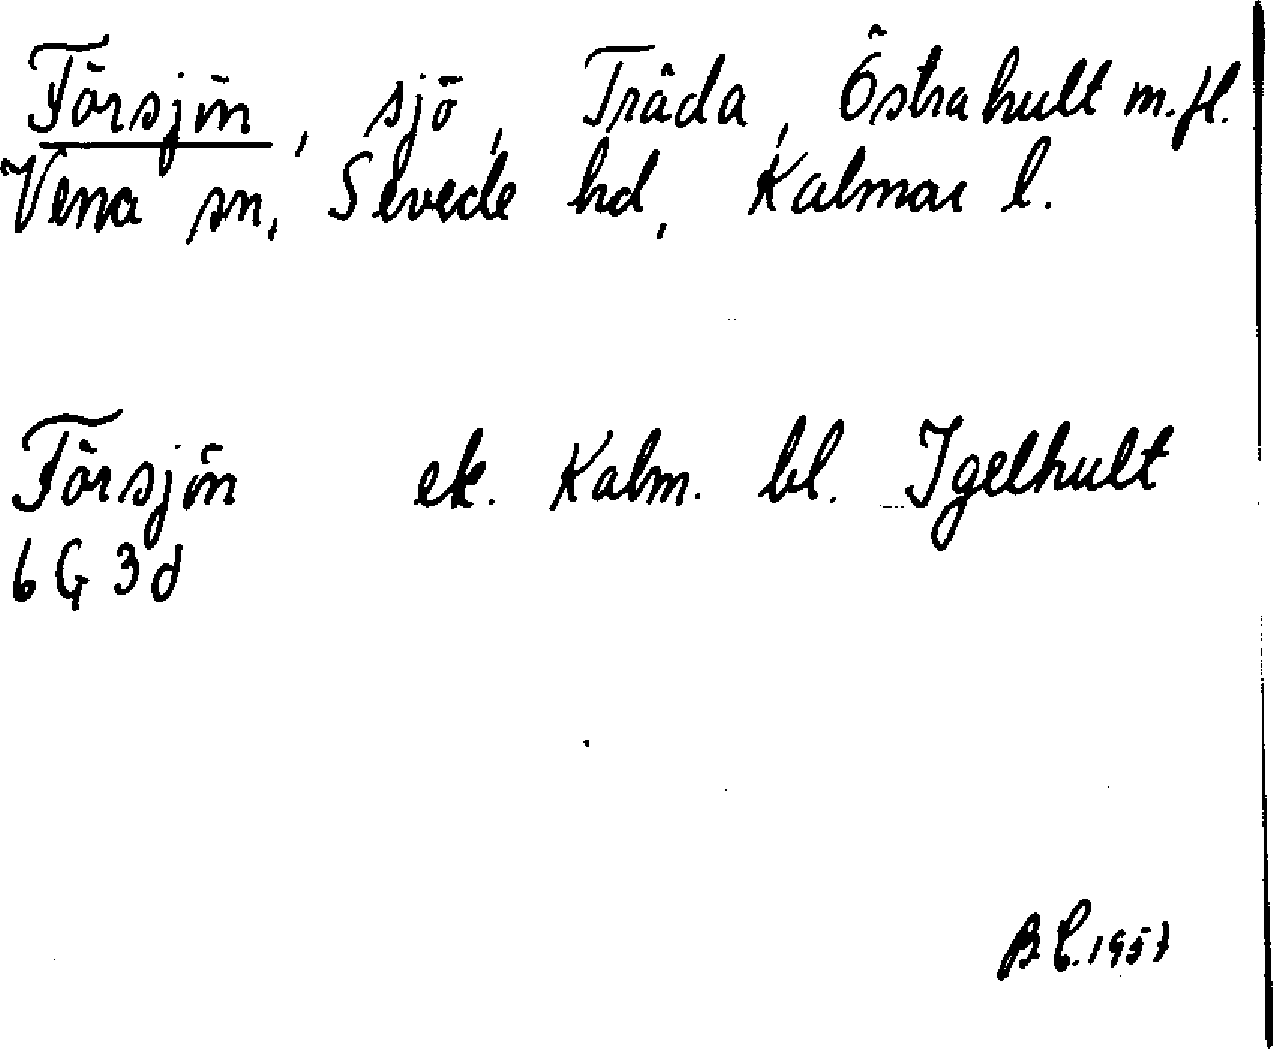 Försjön, sjö, Tråda, Östrahult m.fl.
Vena sn, Sevede hd, Kalmar l.
Försjön ek. Kalm. bl. Igelhult
6 G 3 d
B.E. 1957